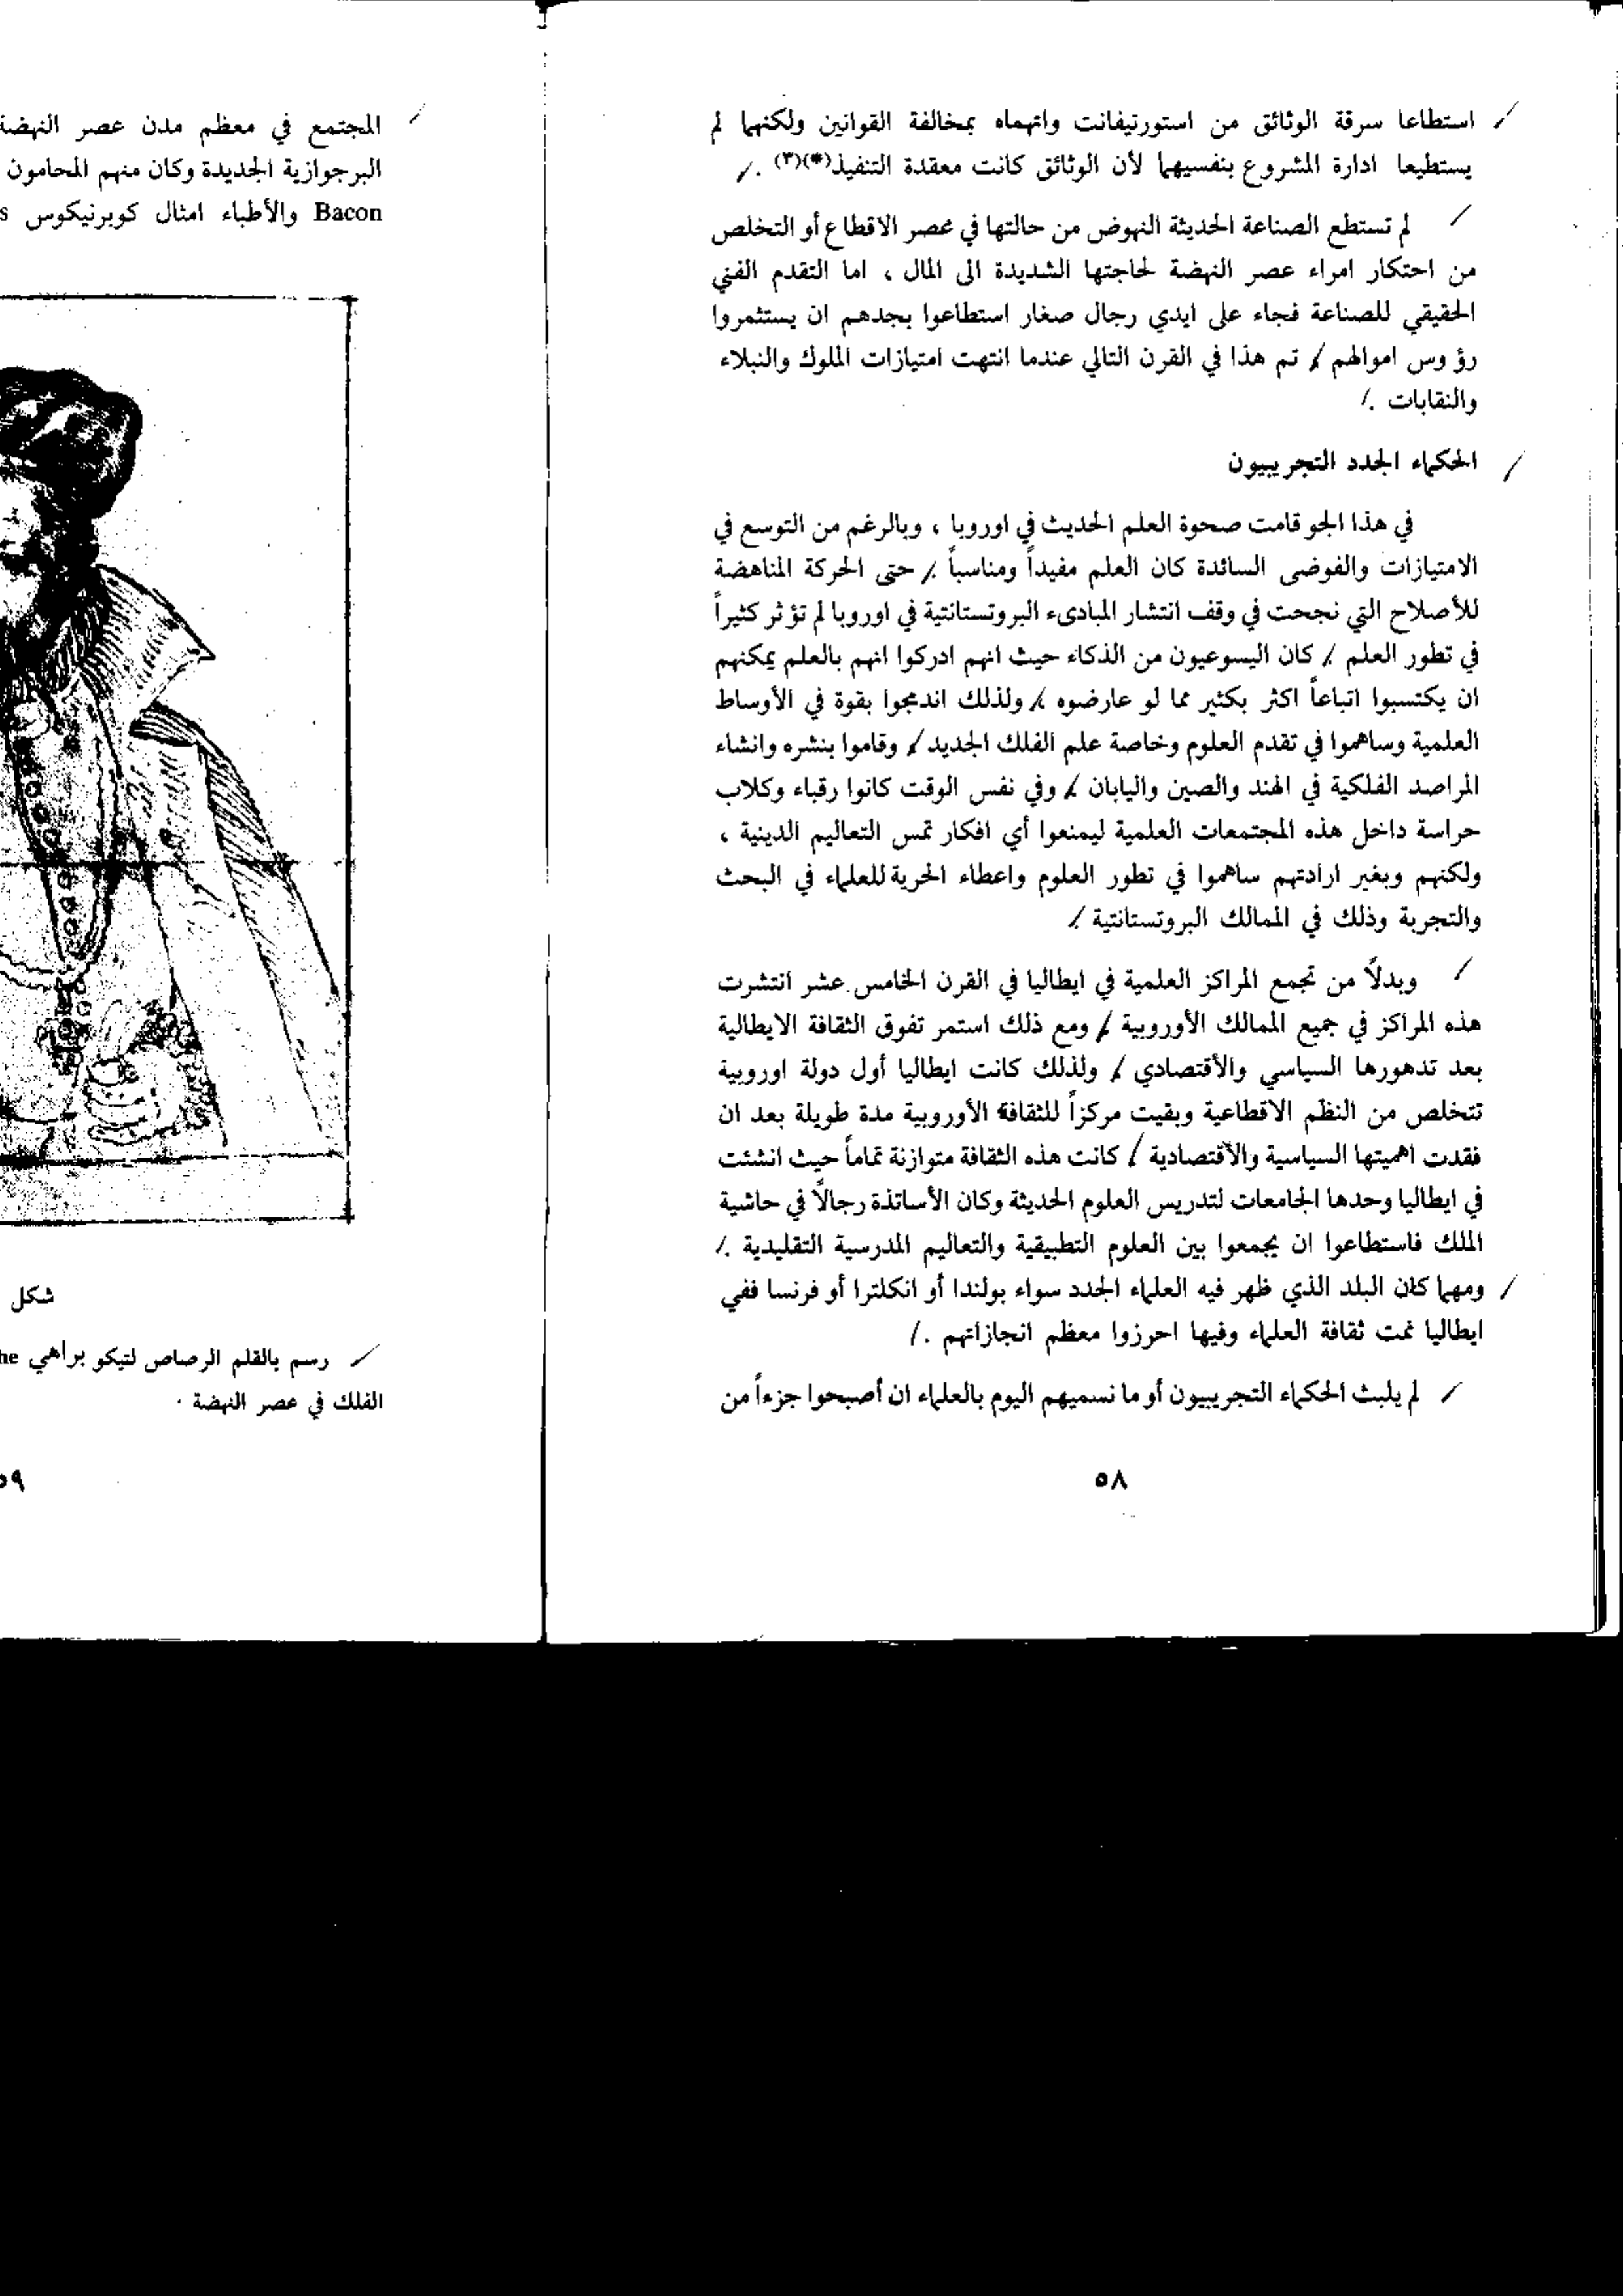 استطاعا سرقة الوثائق من استورتيفانت واتهماه بمخالفة القوانين ولكنهما لم
يستطيعا ادارة المشروع بنفسيهما لأن الوثائق كانت معقدة التنفيذ(*)(٣) .
لم تستطع الصناعة الحديثة النهوض من حالتها في عصر الاقطاع أو التخلص
من احتكار امراء عصر النهضة لحاجتها الشديدة الى المال ، اما التقدم الفني
الحقيقي للصناعة فجاء على ايدي رجال صغار استطاعوا بجدهم ان يستثمروا
رؤوس اموالهم / تم هذا في القرن التالي عندما انتهت امتيازات الملوك والنبلاء
والنقابات .
الحكماء الجدد التجريبيون
في هذا الجو قامت صحوة العلم الحديث في اوروبا ، وبالرغم من التوسع في
الامتيازات والفوضى السائدة كان العلم مفيداً ومناسباً / حتى الحركة المناهضة
للأصلاح التي نجحت في وقف انتشار المبادىء البروتستانتية في اوروبا لم تؤثر كثيراً
في تطور العلم / كان اليسوعيون من الذكاء حيث انهم ادركوا انهم بالعلم يمكنهم
ان يكتسبوا اتباعاً اكثر بكثير مما لو عارضوه / ولذلك اندمجوا بقوة في الأوساط
العلمية وساهموا في تقدم العلوم وخاصة علم الفلك الجديد / وقاموا بنشره وانشاء
المراصد الفلكية في الهند والصين واليابان / وفي نفس الوقت كانوا رقباء وكلاب
حراسة داخل هذه المجتمعات العلمية ليمنعوا أي افكار تمس التعاليم الدينية ،
ولكنهم وبغير ارادتهم ساهموا في تطور العلوم واعطاء الحرية للعلماء في البحث
والتجربة وذلك في الممالك البروتستانتية /
وبدلاً من تجمع المراكز العلمية في ايطاليا في القرن الخامس عشر انتشرت
هذه المراكز في جميع الممالك الأوروبية / ومع ذلك استمر تفوق الثقافة الايطالية
بعد تدهورها السياسي والأقتصادي / ولذلك كانت ايطاليا أول دولة اوروبية
تتخلص من النظم الاقطاعية وبقيت مركزاً للثقافة الأوروبية مدة طويلة بعد ان
فقدت اهميتها السياسية والأقتصادية / كانت هذه الثقافة متوازنة تماماً حيث انشئت
في ايطاليا وحدها الجامعات لتدريس العلوم الحديثة وكان الأساتذة رجالاً في حاشية
الملك فاستطاعوا ان يجمعوا بين العلوم التطبيقية والتعاليم المدرسية التقليدية .
ومهما كان البلد الذي ظهر فيه العلماء الجدد سواء بولندا أو انكلترا أو فرنسا ففي
ايطاليا نمت ثقافة العلماء وفيها احرزوا معظم انجازاتهم .
لم يلبث الحكماء التجريبيون أو ما نسميهم اليوم بالعلماء ان أصبحوا جزءاً من
٥٨
المجتمع في معظم مدن عصر النهضة
البرجوازية الجديدة وكان منهم المحامون
Bacon والأطباء امثال كوبرنيكوس
شكل
رسم بالقلم الرصاص لتيكو براهي
الفلك في عصر النهضة .
٥٩